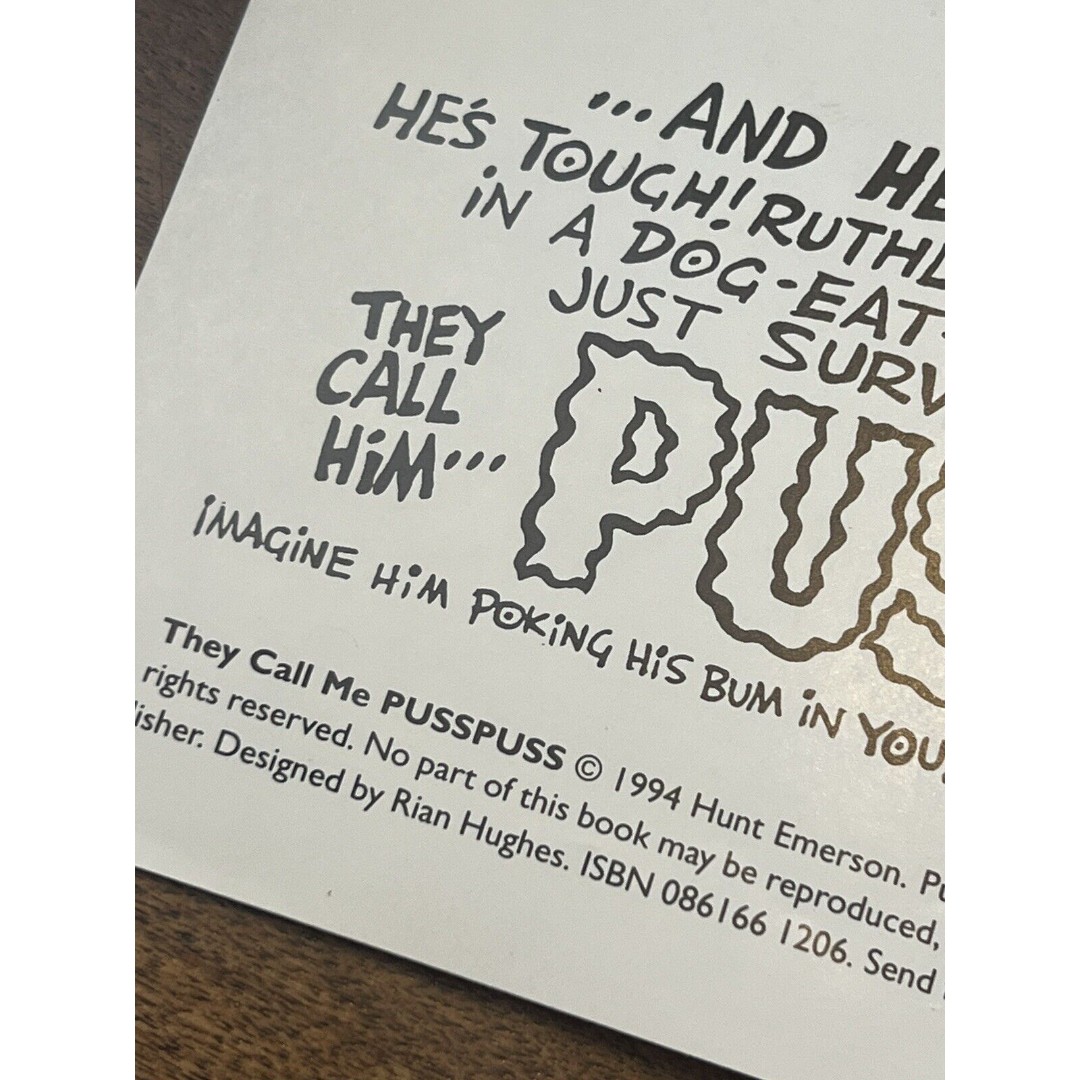 ...AND HE
HE'S TOUGH! RUTHL
iN A DOG-EAT-
JUST SURV
THEY
CALL
HiM...
PUS
iMAGiNE HiM POKiNG HiS BUM iN YOU
They Call Me PUSSPUSS © 1994 Hunt Emerson. Pu
rights reserved. No part of this book may be reproduced,
lisher. Designed by Rian Hughes. ISBN 086166 1206. Send